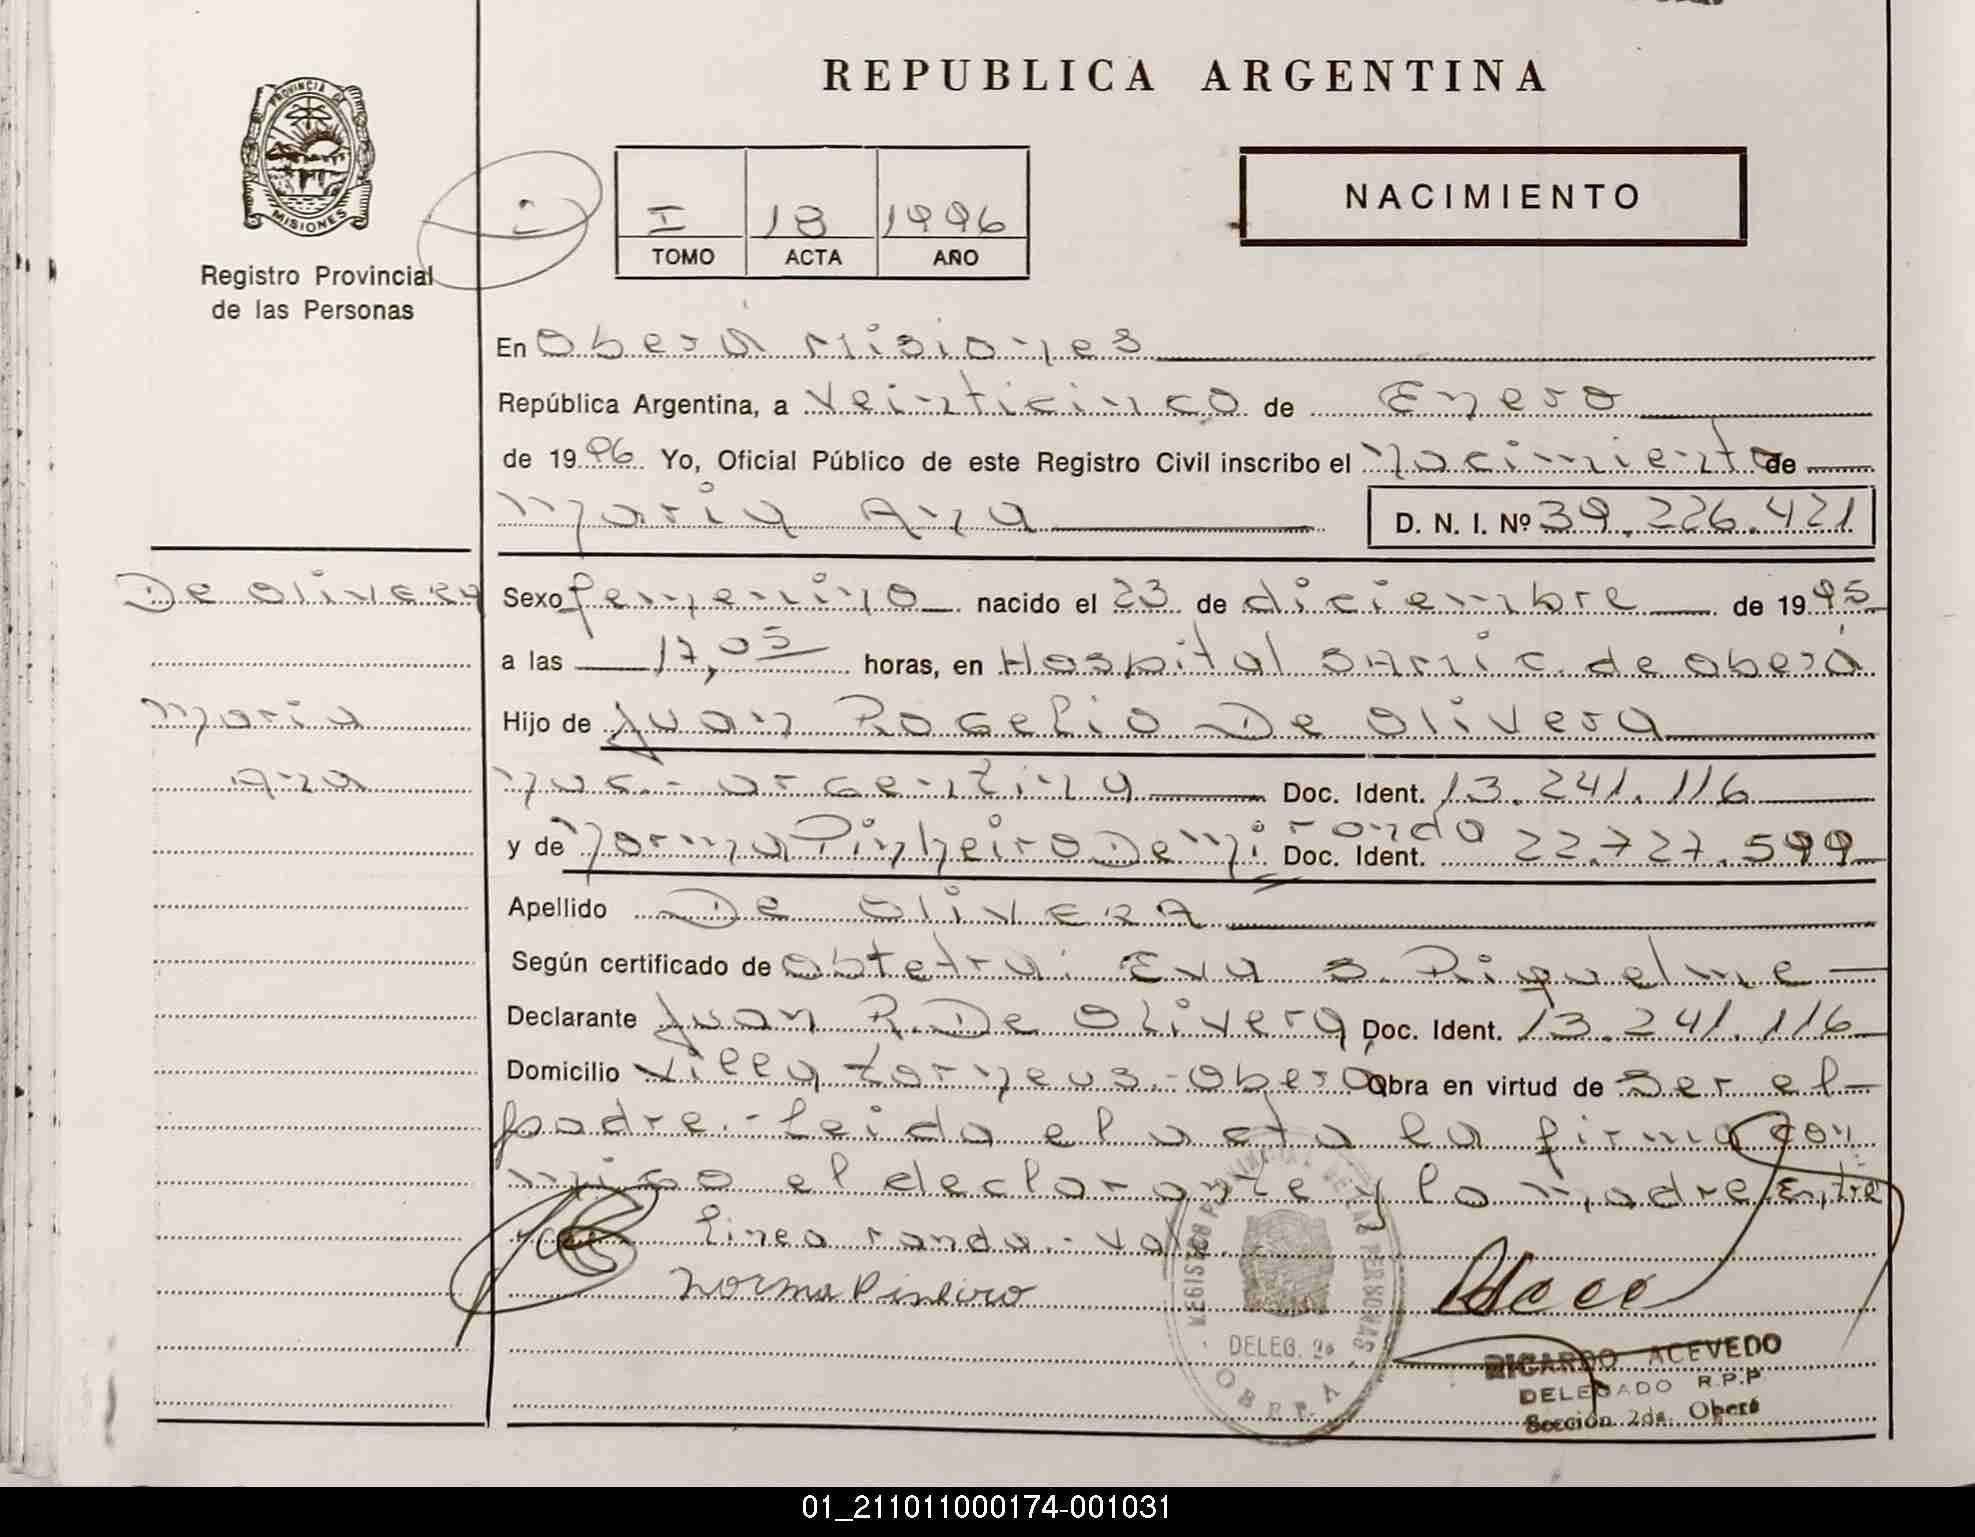 REPUBLICA ARGENTINA
PROVINCIA DE
MISIONES
Registro Provincial
de las Personas
I 18 1996
TOMO ACTA AÑO
NACIMIENTO
En Oberá Misiones
República Argentina, a Veinticinco de Enero
de 1996 Yo, Oficial Público de este Registro Civil inscribo el Nacimiento de
Maria Ana D. N. I. Nº 39.226.421
De Olivera
Maria
Ana
Sexo femenino nacido el 23 de diciembre de 1995
a las 17,05 horas, en Hospital SAMIC. de Oberá
Hijo de Juan Rogelio De Olivera
Nac.- argentina Doc. Ident. 13.241.116
y de Norma Pinheiro De Miranda Doc. Ident. 22.727.599
Apellido De OLIVERA
Según certificado de obstetra: Eva S. Riquelme
Declarante Juan R. De Olivera Doc. Ident. 13.241.116
Domicilio Villa Torneus.-Oberá, Obra en virtud de Ser el
padre.- Leida el acta la firma con
migo el declarante y la madre Entre
linea randa.- Vale.
Norma Pineiro
REGISTRO PROVINCIAL DE LAS PERSONAS
DELEG. 2a
OBERA
RICARDO ACEVEDO
DELEGADO R.P.P.
Sección 2da. Oberá
01_211011000174-001031